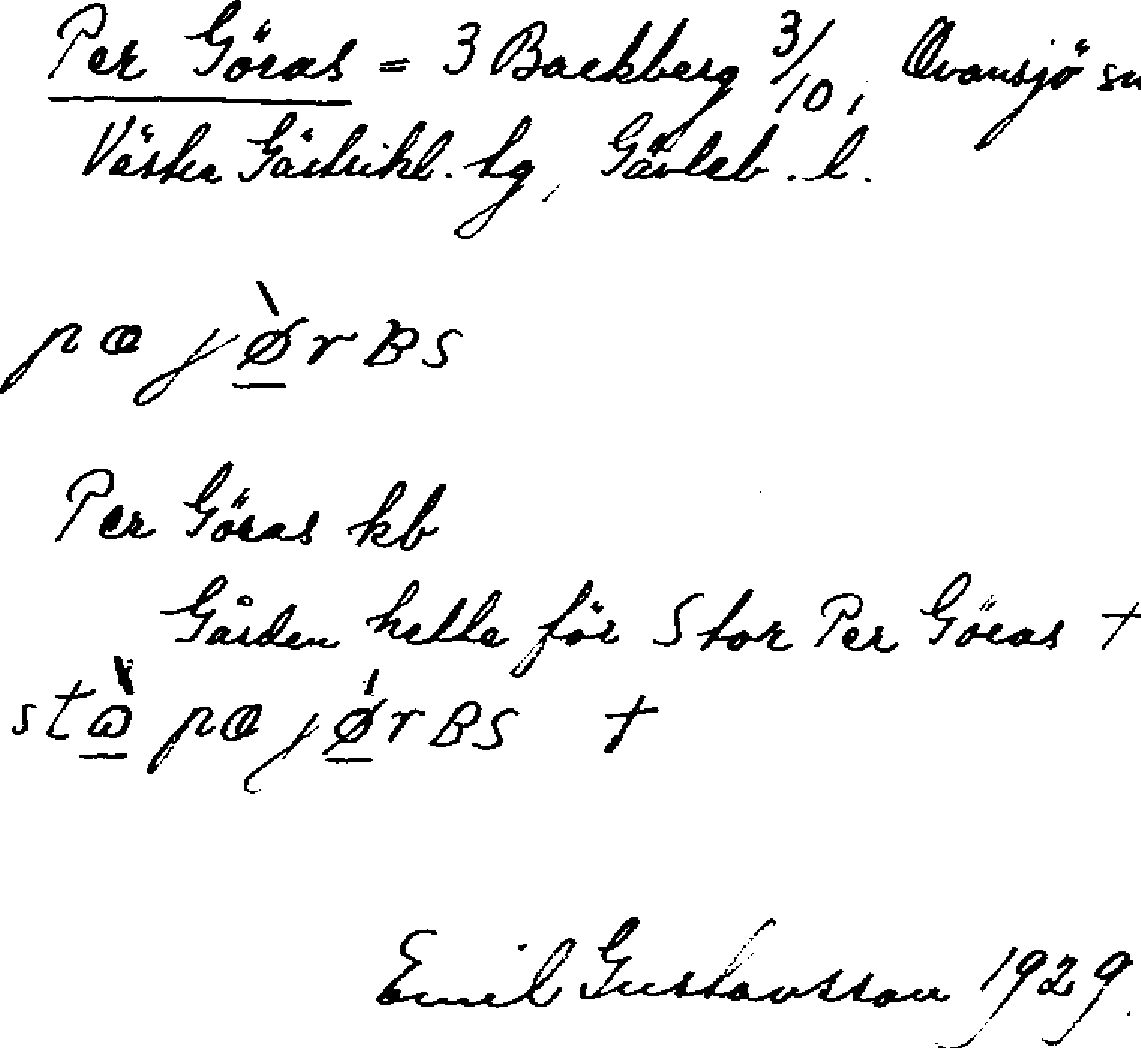 Per Göras = 3 Backberg 3/10, Ovansjö sn
Väster Gästrikl. tg, Gävleb. l.
pæ jø̀rʙs
Per Göras kb
Gården hette för Stor Per Göras †
pæ jø̀rʙs †
Emil Gustavsson 1929.